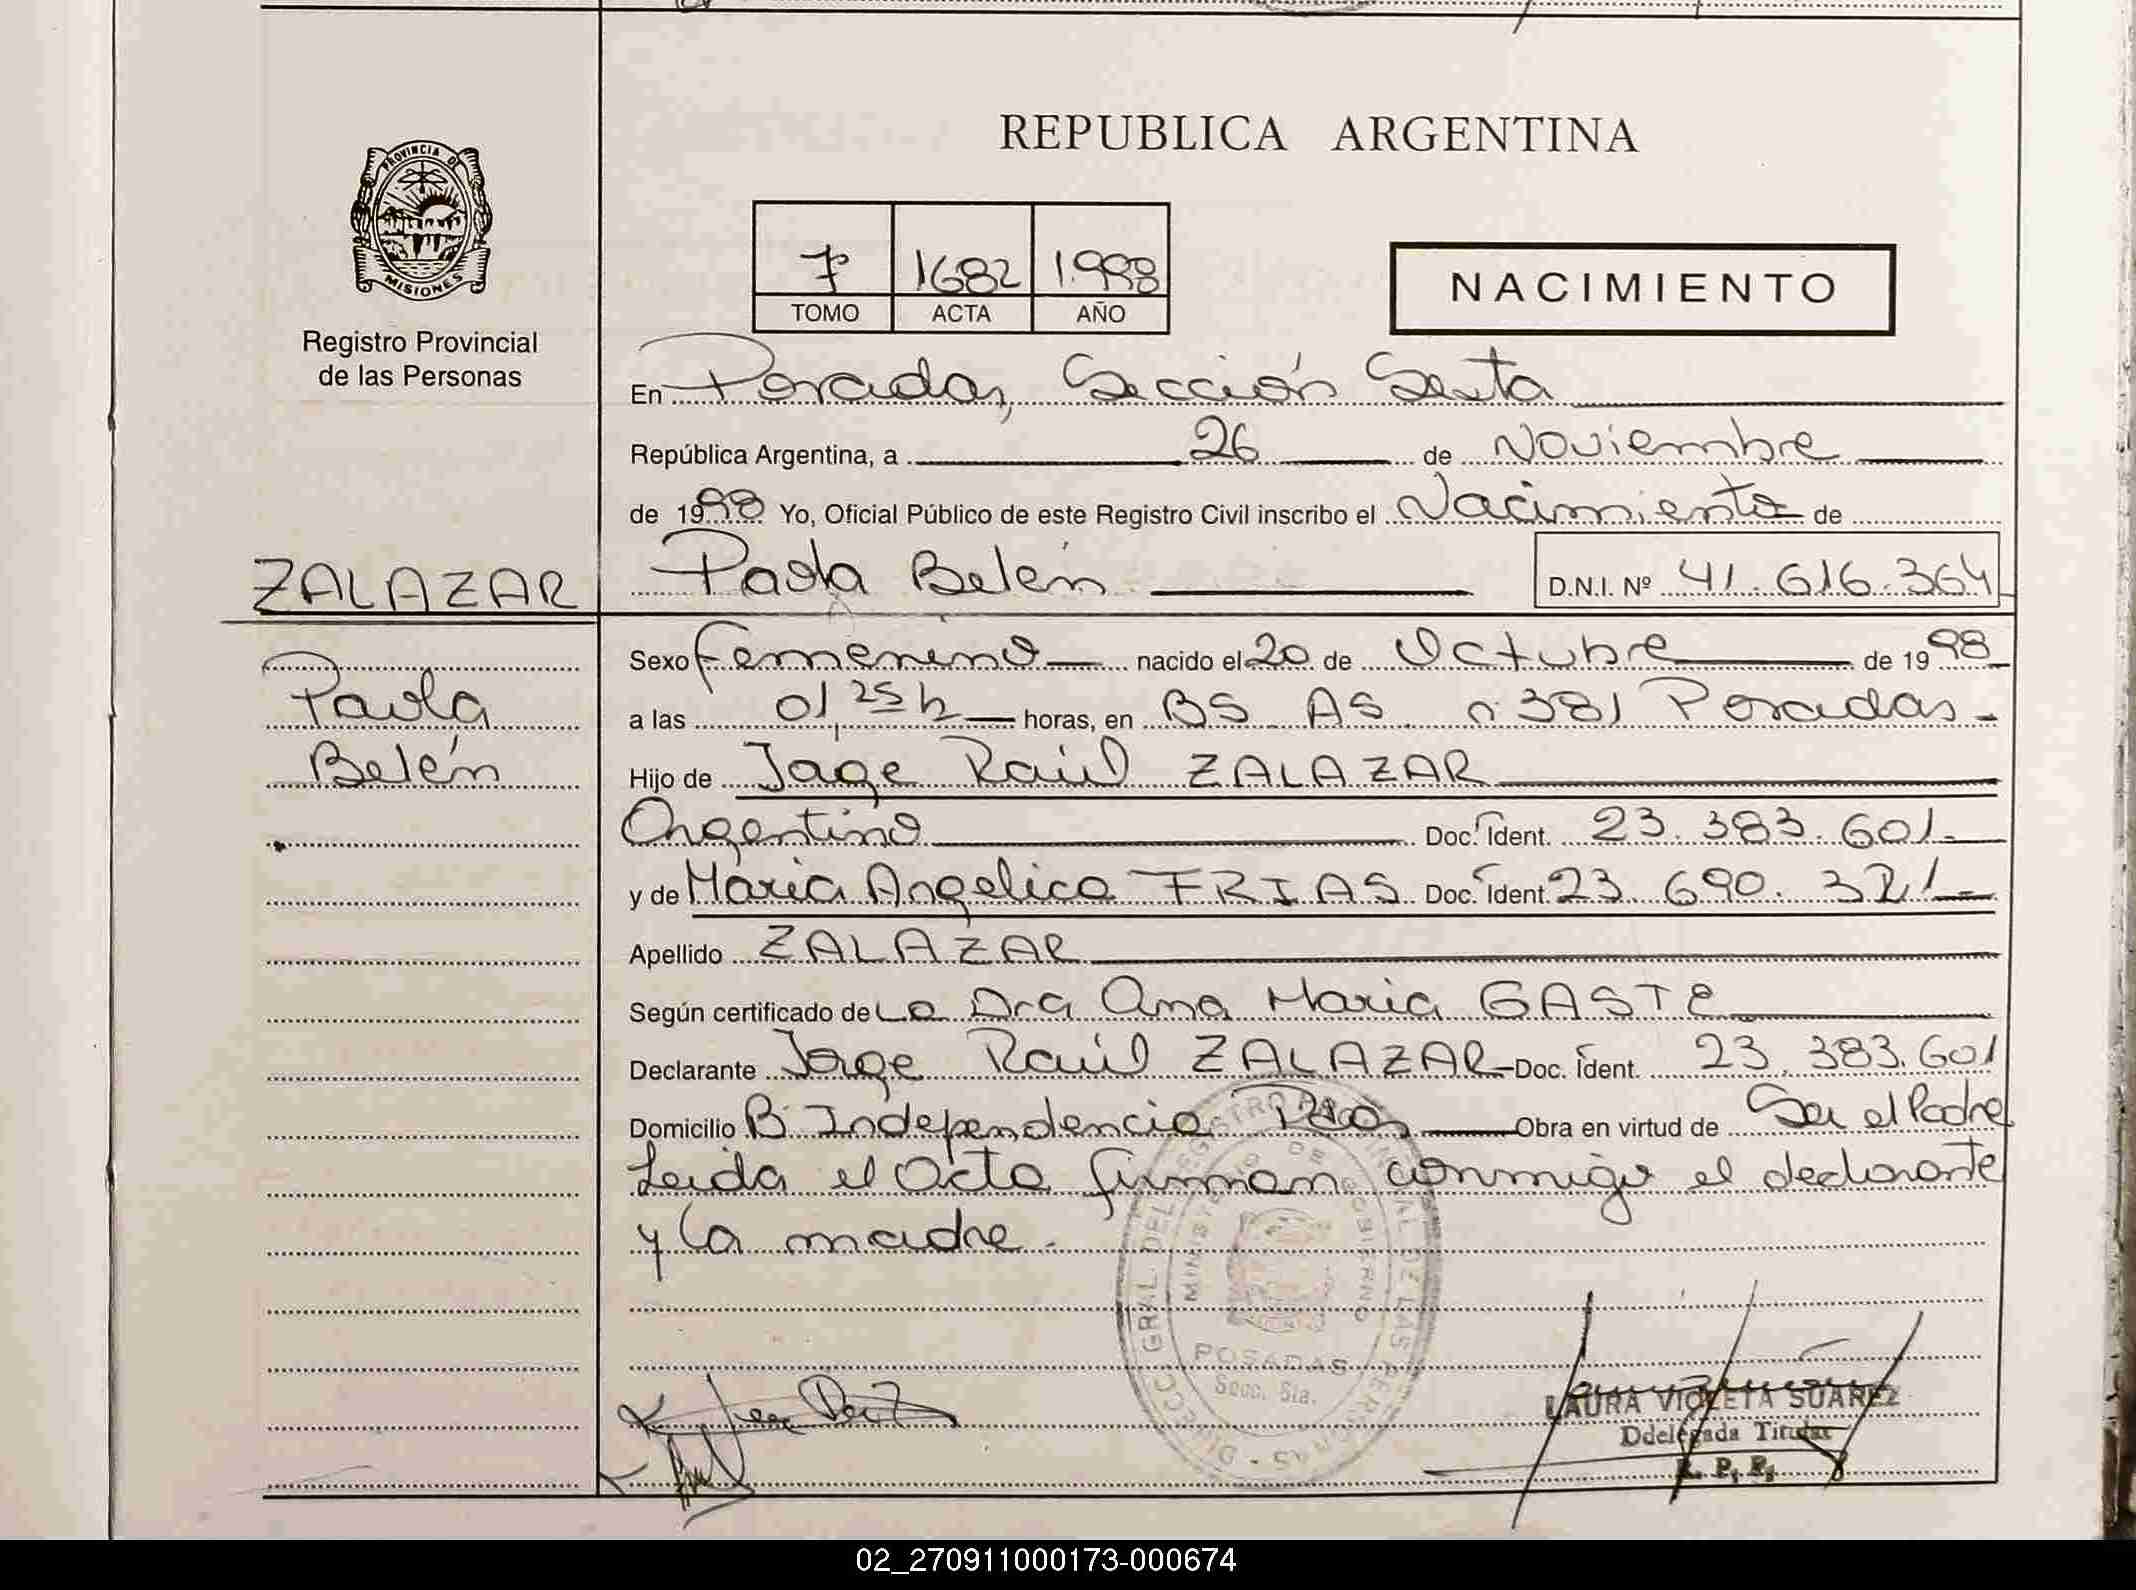 REPUBLICA ARGENTINA
PROVINCIA DE
MISIONES
Registro Provincial
de las Personas
7 1682 1.998
TOMO ACTA AÑO
NACIMIENTO
En Posadas, Sección Sexta
República Argentina, a 26 de Noviembre
de 1998 Yo, Oficial Público de este Registro Civil inscribo el Nacimiento de
ZALAZAR Paola Belén D.N.I. Nº 41.616.364
Paola
Belén
Sexo Femenino nacido el 20 de Octubre de 1998
a las 01,25 h horas, en BS AS n 381 Posadas
Hijo de Jorge Raúl ZALAZAR
Argentino Doc. Ident. 23.383.601
y de Maria Angelica FRIAS Doc. Ident. 23.690.321
Apellido ZALAZAR
Según certificado de La Dra Ana Maria GASTE
Declarante Jorge Raúl ZALAZAR Doc. Ident. 23.383.601
Domicilio B Independencia Pdas Obra en virtud de Ser el Padre
Leida el Acta firman conmigo el declarante
y la madre.
DIRECC. GRAL. DEL REGISTRO PROVINCIAL DE LAS PERSONAS
MINISTERIO DE GOBIERNO
POSADAS
Secc. 6ta.
LAURA VIOLETA SUAREZ
Ddelegada Titular
R. P. P.
02_270911000173-000674